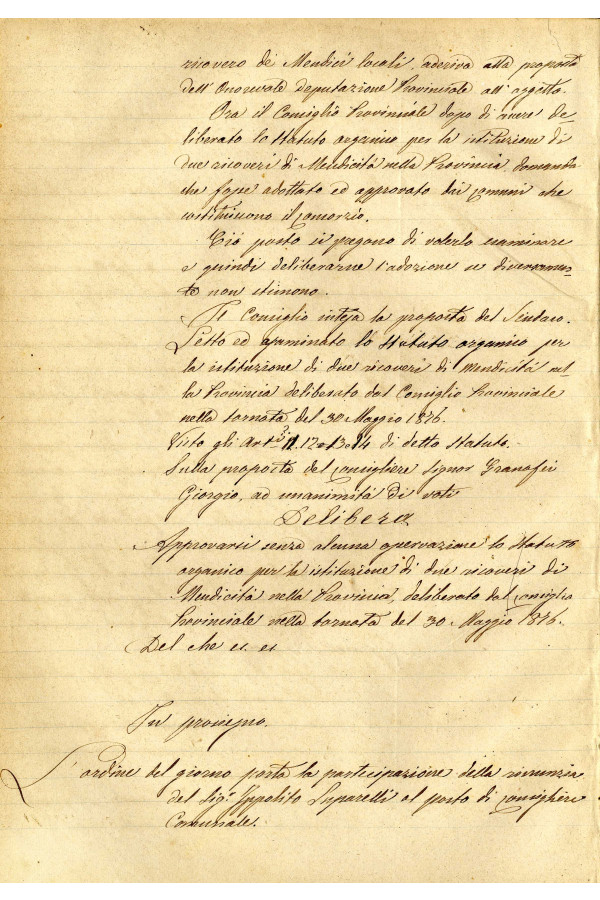 ricovero de' Mendici locali, aderiva alla proposta
dell'Onorevole Deputazione Provinciale all'oggetto.
Ora il Consiglio Provinciale dopo di avere de
liberato lo Statuto organico per la istituzione di
due ricoveri di Mendicità nella Provincia, domanda
che fosse adottato ed approvato dai Comuni che
costituiscono il Consorzio.
Ciò posto si pregano di volerlo esaminare
e quindi deliberarne l'adozione se diversamen
te non stimono.
Il Consiglio intesa la proposta del Sindaco.
Letto ed esaminato lo Statuto organico per
la istituzione di due ricoveri di mendicità nel
la Provincia deliberato dal Consiglio Provinciale
nella tornata del 30 Maggio 1876.
Visto gli Art. 11. 12 e 13 e 14. di detto Statuto.
Sulla proposta del Consigliere Signor Granafei
Giorgio, ad unanimità di voti
Delibera
Approvarsi senza alcuna osservazione lo Statuto
organico per la istituzione di due ricoveri di
Mendicità nella Provincia, deliberato dal Consiglio
Provinciale nella tornata del 30 Maggio 1876.
Del che ec. ec.
In prosieguo.
L'ordine del giorno porta la partecipazione della rinunzia
del Sig.r Ippolito Luparelli al posto di Consigliere
Comunale.